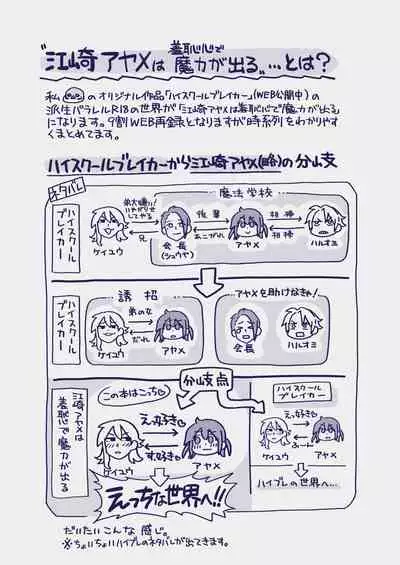 "江崎アヤメは羞恥心で魔力が出る"…とは?
私のオリジナル作品「ハイスクールブレイカー」(WEB公開中)の
派生パラレルR18の世界が「江崎アヤメは羞恥心で魔力が出る」
になります。9割WEB再録となりますが時系列をわかりやす
くまとめてます。
ハイスクールブレイカーから江崎アヤメ(略)の分岐
ネタバレ
ハイスクールブレイカー
魔法学校
弟大嫌い!
いやがらせ
してやる
兄
ケイユウ
会長
(シュウヤ)
後輩
あこがれ
アヤメ
相棒
相棒
ハルオミ
ハイスクールブレイカー
誘招
弟の女
だれ
ケイユウ
アヤメ
アヤメを助けなきゃ!
会長
ハルオミ
分岐点
江崎アヤメは羞恥心で魔力が出る
この本はこっち
えっ好き
す、好き
ケイユウ
アヤメ
えっちな世界へ!!
ハイスクール
ブレイカー
えっ好き
ケイユウ
アヤメ
ハイブレの世界へ…
だいたいこんな感じ。
※ちょいちょいハイブレのネタバレが出てきます。